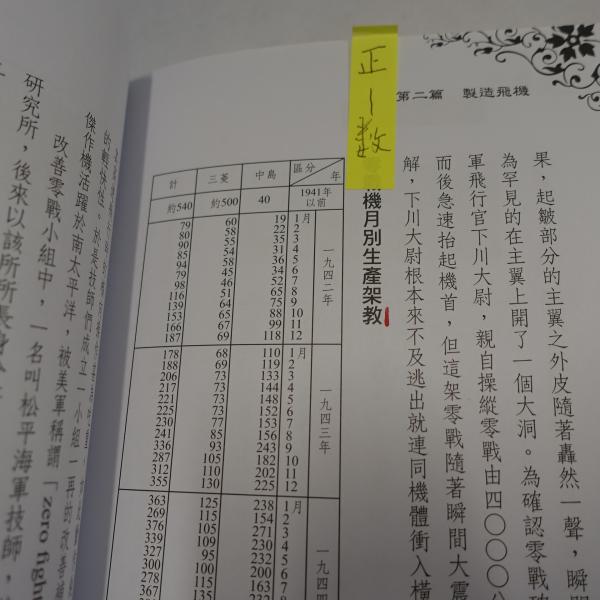 第二篇 製造飛機
果，起皺部分的主翼之外皮隨著轟然一聲，瞬間
為罕見的在主翼上開了一個大洞。為確認零戰
軍飛行官下川大尉，親自操縱零戰由四〇〇〇公
而後急速抬起機首，但這架零戰隨著瞬間大震
解，下川大尉根本來不及逃出就連同機體衝入橫
正一数
機月別生產架教
計 三菱 中島 區分 年
約540 約500 40 1941年以前
一九四二年
79 60 19 1月
80 58 22 2
90 55 35 3
85 54 31 4
94 58 36 5
79 45 34 6
98 46 52 7
116 51 65 8
139 64 75 9
153 65 88 10
166 67 99 11
187 69 118 12
一九四三年
178 68 110 1月
188 69 119 2
206 73 133 3
217 73 144 4
221 73 148 5
225 73 152 6
230 77 153 7
241 85 156 8
336 93 243 9
287 105 182 10
312 110 202 11
355 130 225 12
一九四
363 125 238 1月
269 115 154 2
376 105 271 3
339 109 230 4
327 95 232 5
300 100 200 6
278 115 163 7
367
改善零戰小組中，一名叫松平海軍技師，
研究所，後來以該所所長身
傑作機活躍於南太平洋，被美軍稱謂「zero figh